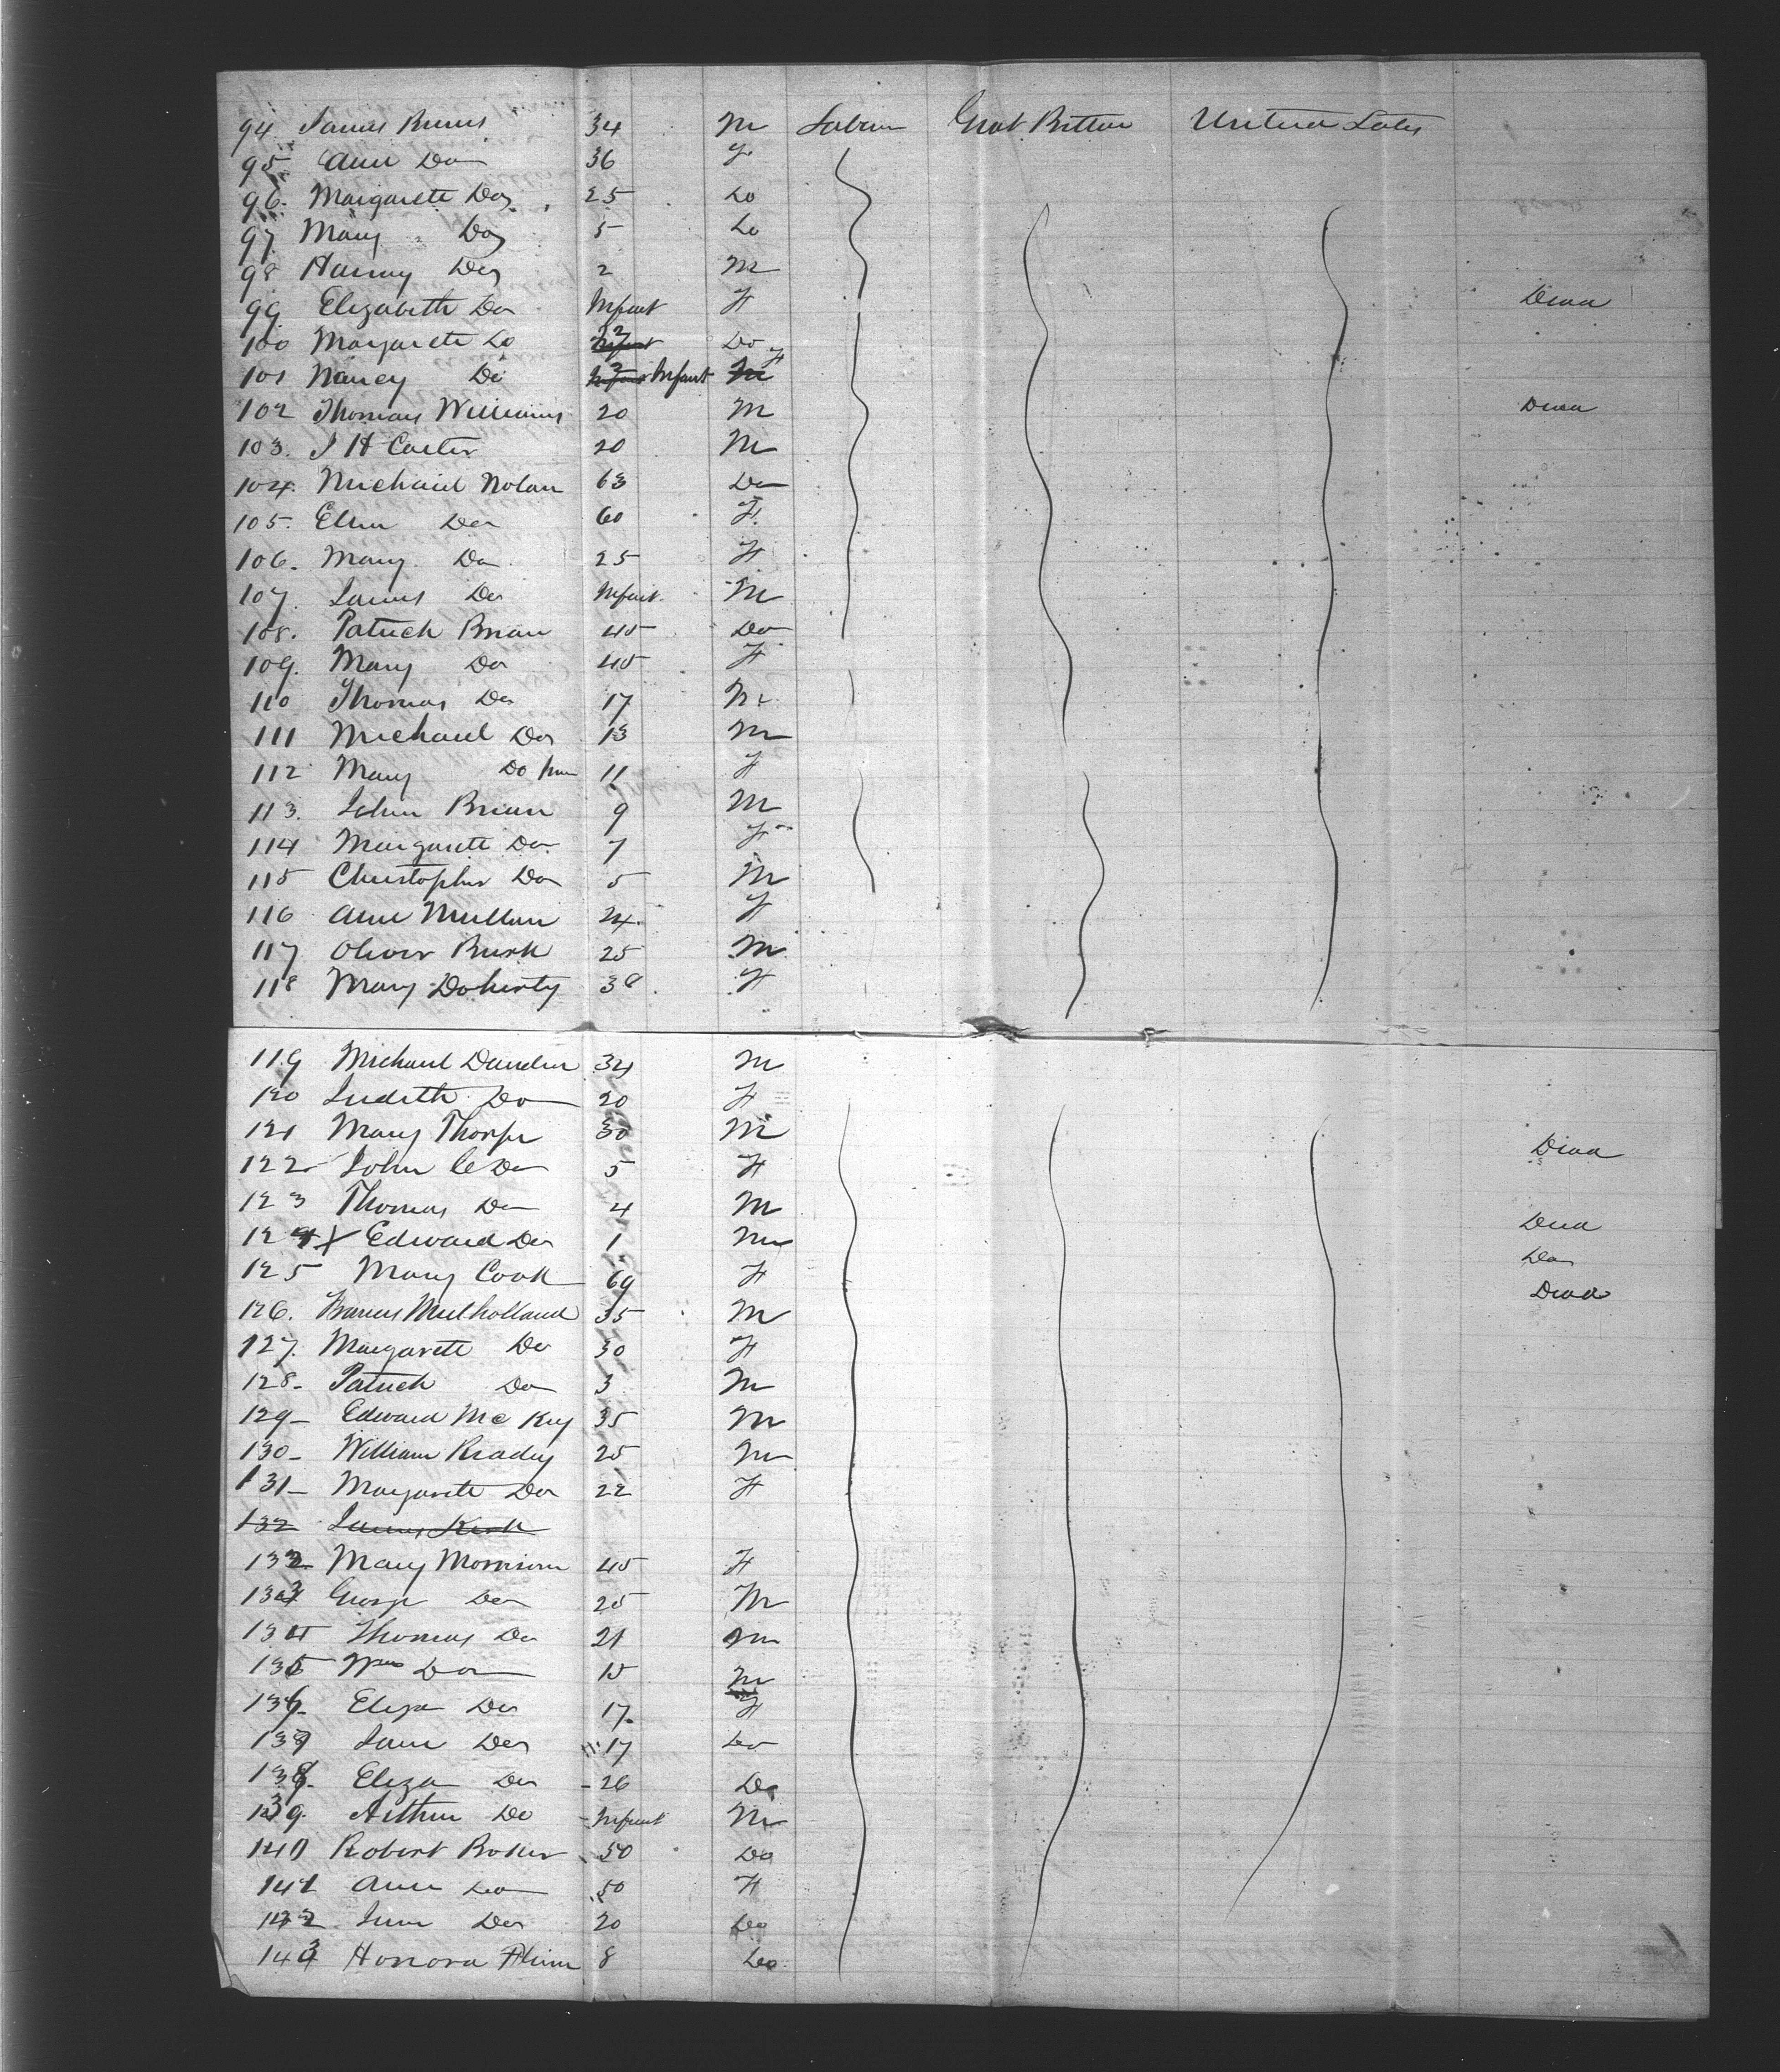 94 James Burns 34 M Labour Great Brittan United States
95 Ann Do 36 F
96. Margarett Do 25 Do
97 Mary Do 5 Do
98 Harvey Do 2 M
99 Elizabeth Do Infant F Dead
100 Margarett Do 2 Do
101 Nancy Do Infant F
102 Thomas Williams 20 M Dead
103. J H Carter 20 M
104. Michael Nolan 63 Do
105. Ellen Do 60 F.
106. Mary Do 25 F
107. James Do Infant. M
108. Patrick Brian 45 Do
109. Mary Do 45 F
110 Thomas Do 17 M
111 Michael Do 13 M
112 Mary Do 11 F
113. John Brian 9 M
114 Margarett Do 7 F
115 Christopher Do 5 M
116 Ann Mullen 24. F
117 Oliver Burk 25 M
118 Mary Doherty 38 F
119 Michael 34 M
120 Judith Do 20 F
121 Mary Thorpe 30 M Dead
122 John C Do 5 F
123 Thomas Do 4 M Dead
124 X Edward Do 1 M Do
125 Mary Cook 69 F Dead
126. Francis Mulholland 35 M
127. Margarett Do 30 F
128- Patrick Do 3 M
129- Edward Mc Key 35 M
130- William Brady 25 M
131- Margarett Do 22 F
132 James Kirk
132 Mary Morrison 45 F
133 George Do 25 M
134 Thomas Do 21 M
135 Wm Do 15 M
136. Eliza Do 17. F
137 Jane Do 17 Do
138. Eliza Do 26 Do
139. Arthur Do Infant M
140 Robert Boker 50 Do
141 Ann Do 50 F
142 Jane Do 20 Do
143 Honora Flinn 8 Do